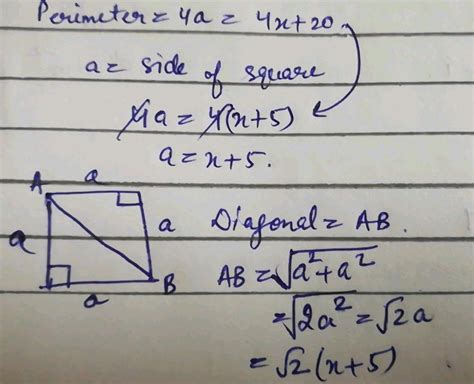 Perimeter = 4a = 4x+20.
a = side of square
4a = 4(x+5)
a = x+5.
A a
a a
a B
Diagonal = AB.
AB = √a²+a²
= √2a² = √2a
= √2(x+5)